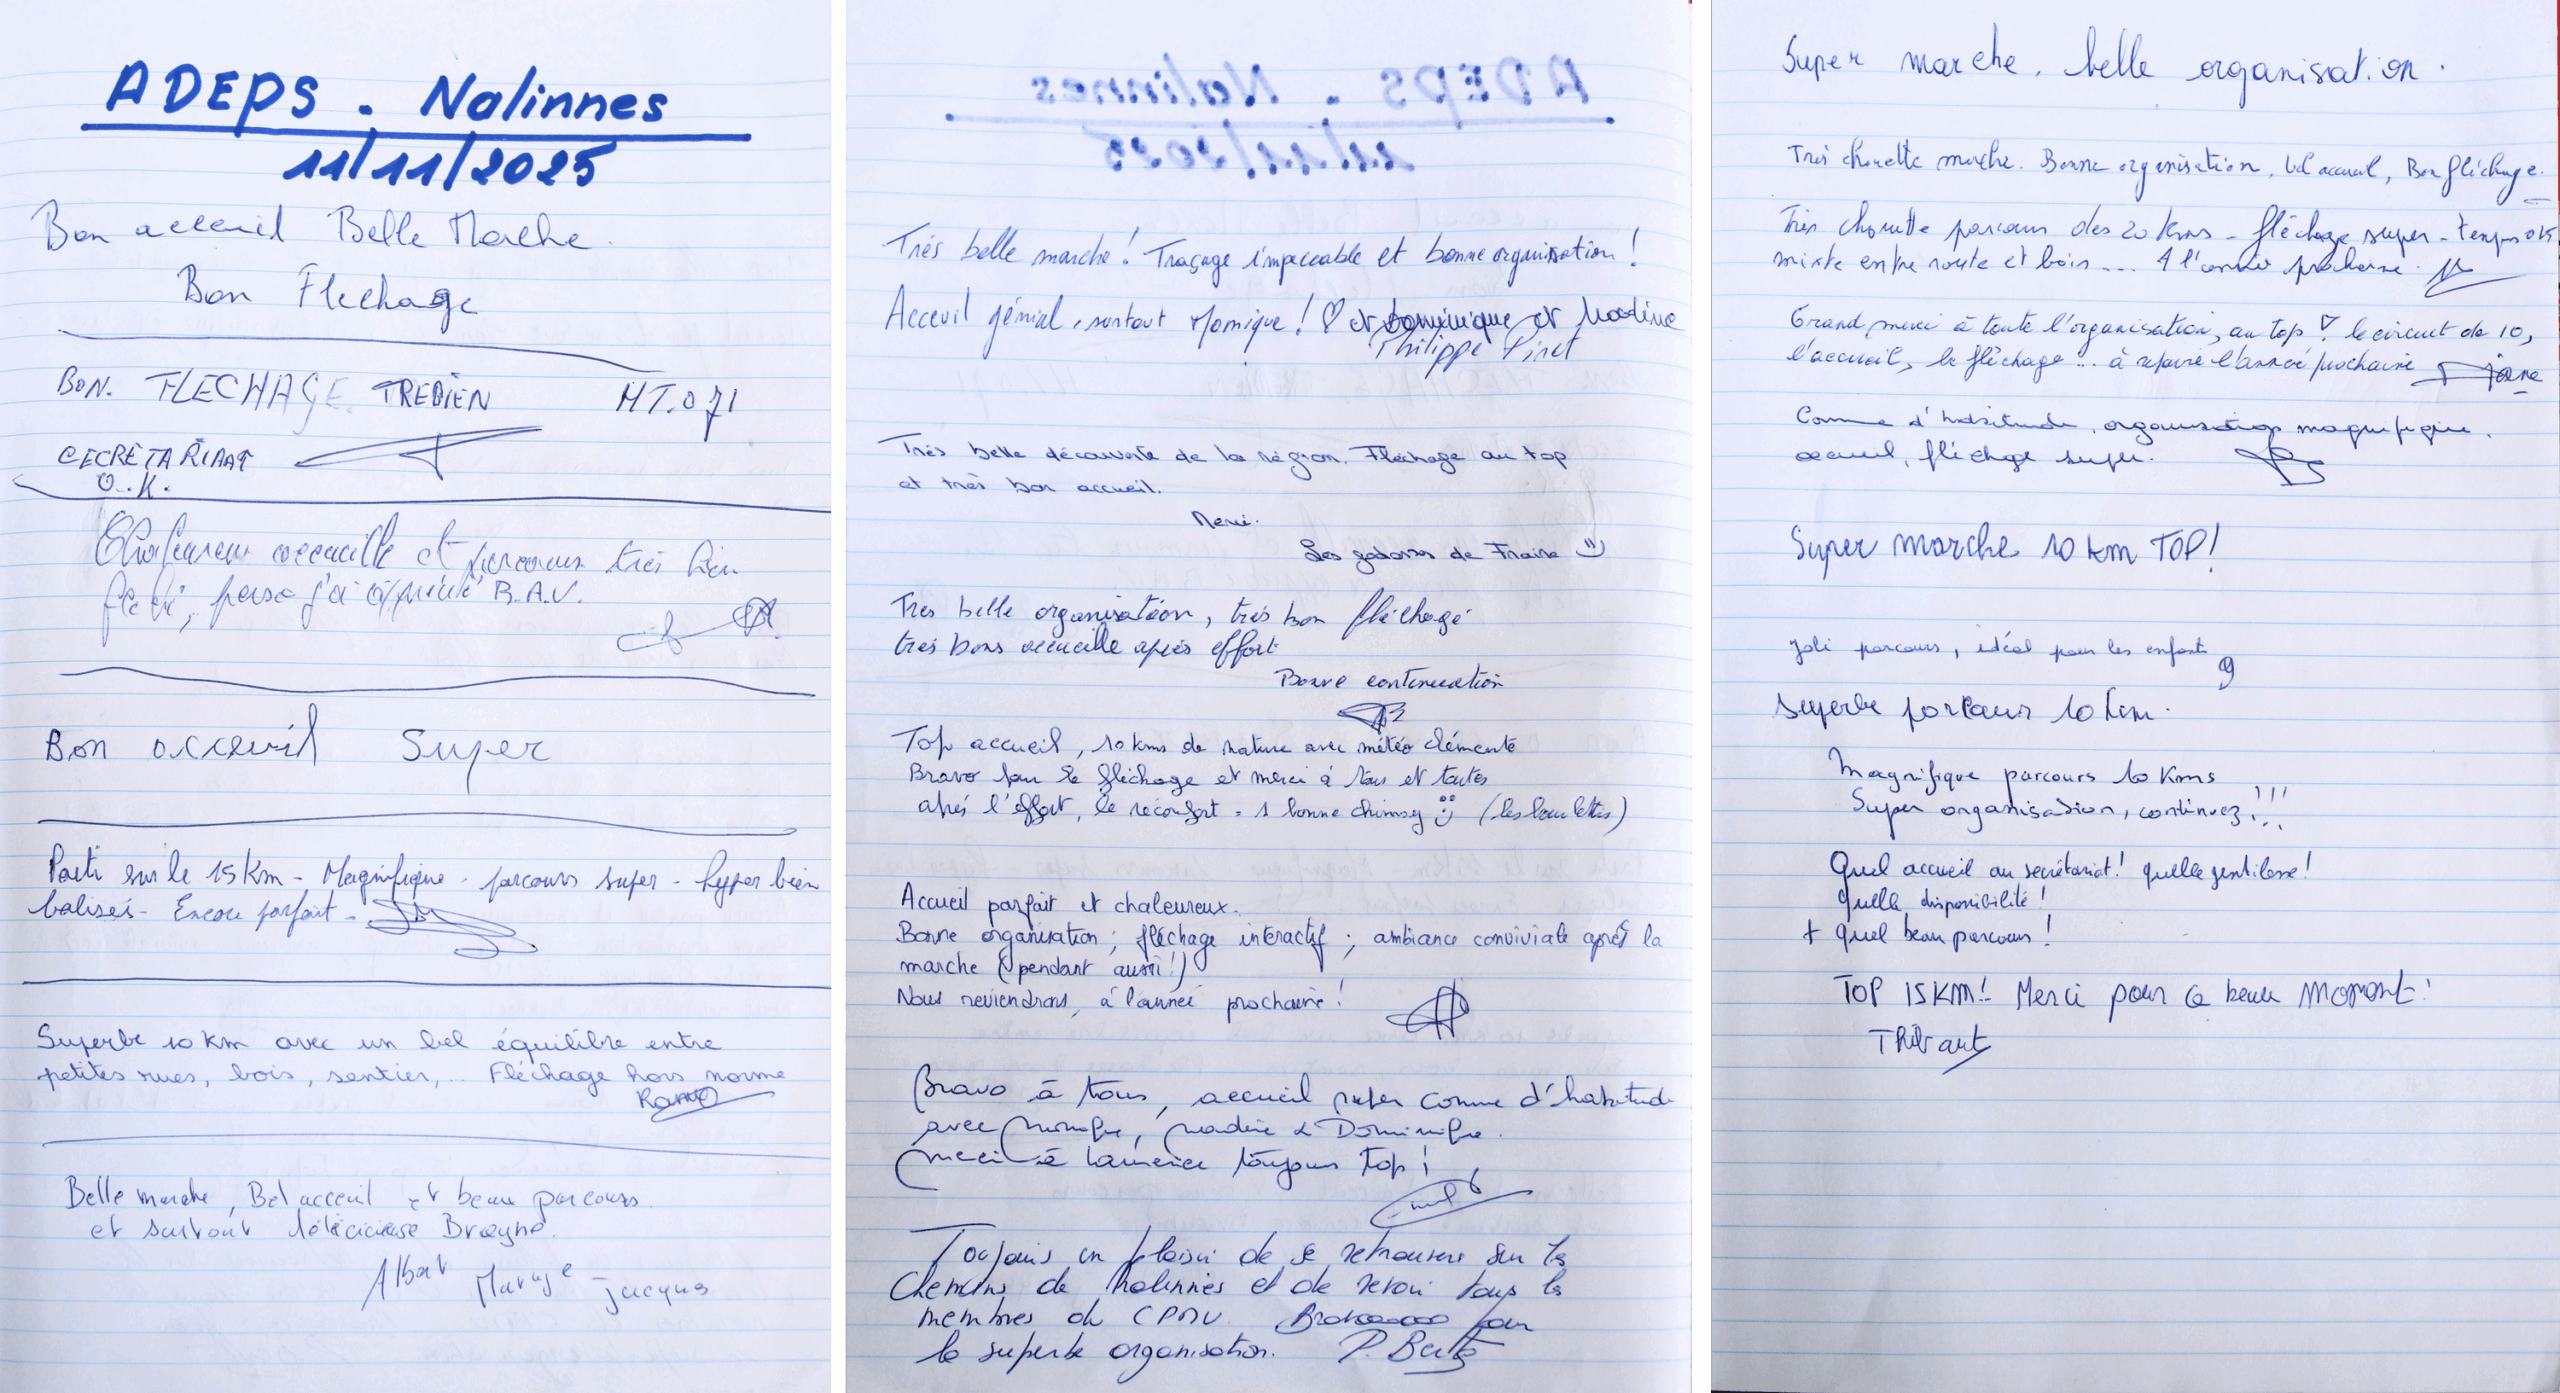 ADEPS - Nalinnes
11/11/2025
Bon acceuil Belle Marche.
Bon Flechage
BON. FLECHAGE. TREBIEN MT.071
SECRETARIAAT
O.K.
Chaleureux acceuille et parcours très bien
fléché, perso j'ai apprécié B.A.V.
Bon acceuil Super
Parti sur le 15 Km - Magnifique - parcours super - hyper bien
balisés - Encore parfait -
Superbe 10 km avec un bel équilibre entre
petites rues, bois, sentier, ... Fléchage hors norme
Belle marche, Bel acceuil et beau parcours
et surtout délécicieuse
Albert Jacques
Très belle marche ! Traçage impeccable et bonne organisation !
Acceuil génial, surtout Monique ! ♡ et Dominique et Nadine
Philippe Piret
Très belle découverte de la région. Fléchage au top
et très bon accueil.
Merci.
Les de Fraire
Très belle organisation, très bon fléchagé
très bons accueille après effort
Bonne continuation
Top accueil, 10 kms de nature avec météo clémente
Bravo pour le fléchage et merci à tous et toutes
après l'effort, le réconfort = 1 bonne chimay (les boulettes)
Accueil parfait et chaleureux.
Bonne organisation ; fléchage interactif ; ambiance conviviale après la
marche (pendant aussi !)
Nous reviendrons, à l'année prochaine !
Bravo à tous, accueil super comme d'habitude
avec Monique, Nadine & Dominique.
Merci à Laurence toujours top !
Toujours un plaisir de se retrouver sur les
chemins de Nalinnes et de revoir tous les
membres du pour
la superbe organisation. P.
Super marche, belle organisation.
Très chouette marche. Bonne organisation, bel accueil, Bon fléchage.
Très chouette parcours des 20 kms - fléchage super - temps ok
mixte entre route et bois ... A l'année prochaine.
Grand merci à toute l'organisation, au top ♡ le circuit de 10,
l'accueil, le fléchage ... à refaire l'année prochaine
Comme d'habitude, organisation magnifique.
accueil, fléchage super.
Super marche 10 km TOP!
Joli parcours, idéal pour les enfants
superbe parcours 10 km.
Magnifique parcours 10 Kms
Super organisation, continuez !!!
Quel accueil au secrétariat ! quelle gentillesse !
quelle disponibilité !
+ quel beau parcours !
TOP 15 KM! Merci pour ce beau moment !
Thibaut